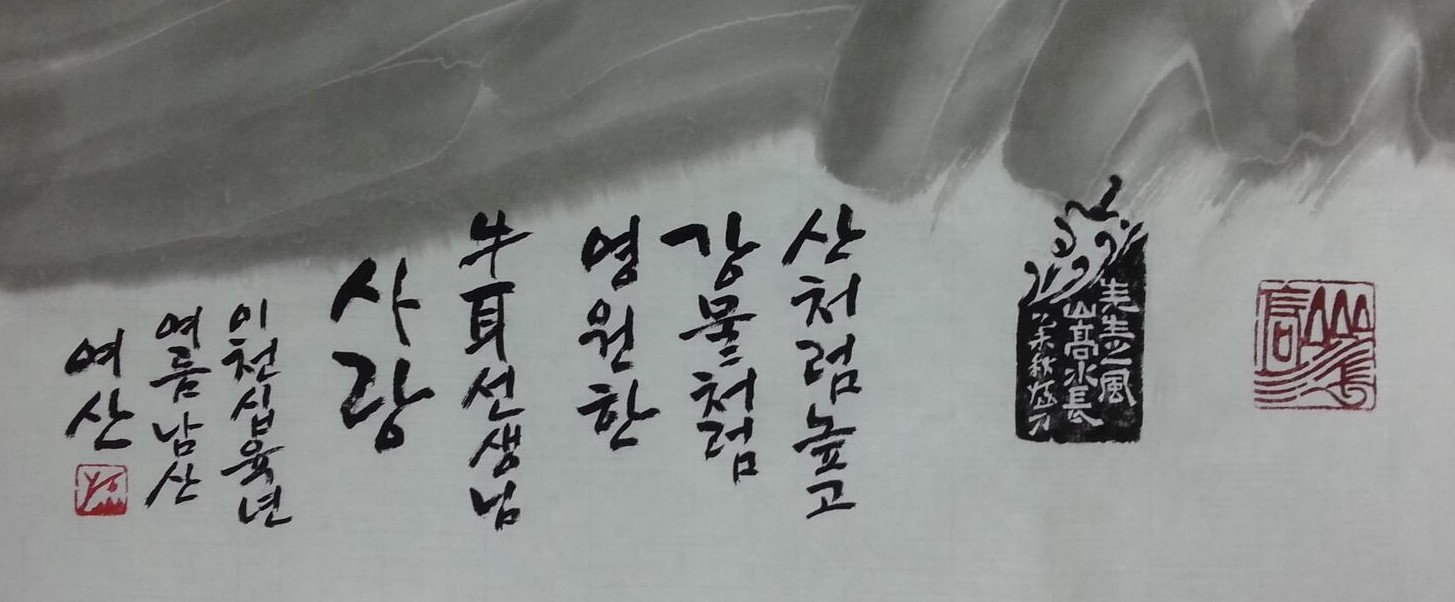 山高水長
先生之風
山高水長
산처럼높고
강물처럼
영원한
牛耳선생님
사랑
이천십육년
여름남산
여산